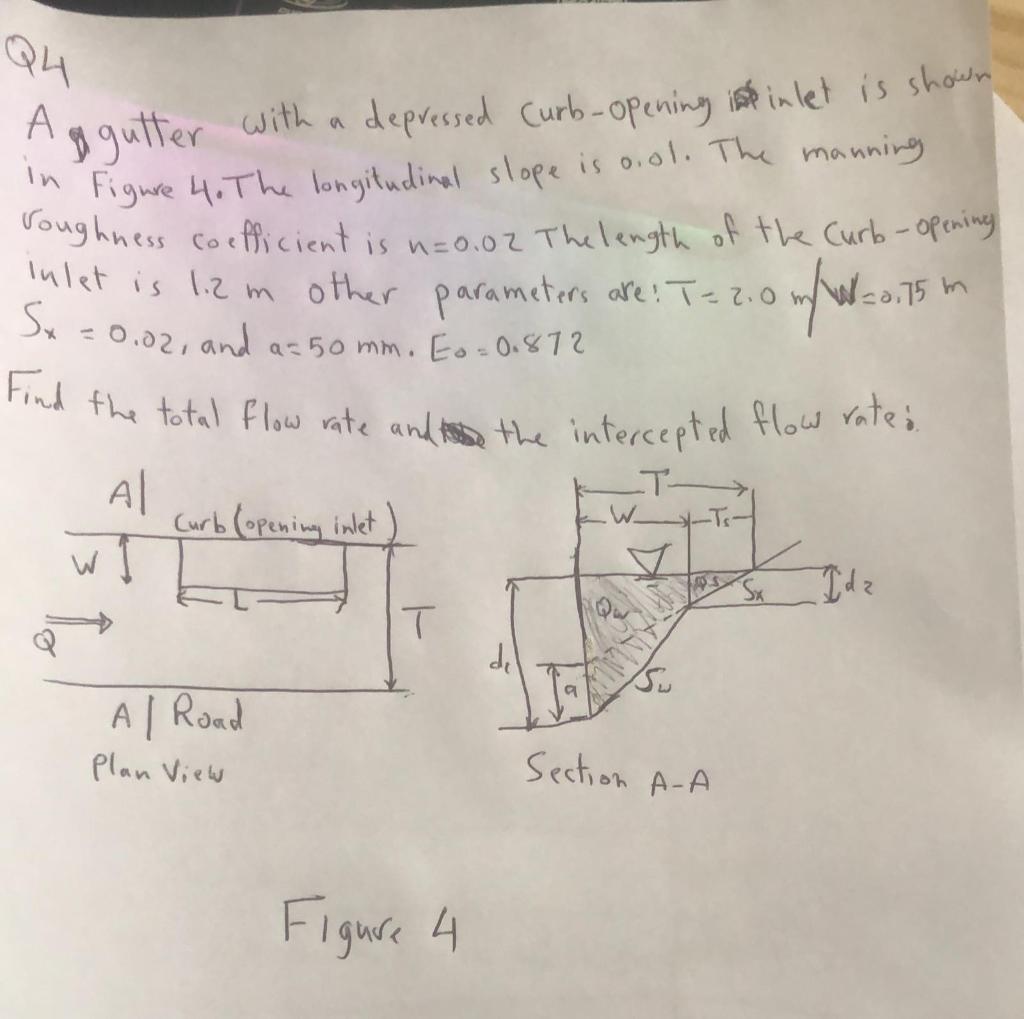 Q4
A gutter with a depressed Curb-opening inlet is shown
in Figure 4. The longitudinal slope is 0.01. The manning
roughness coefficient is n=0.02 The length of the Curb-opening
inlet is 1.2 m other parameters are: T= 2.0 m/W=0.75 m
Sx = 0.02, and a=50 mm. Eo=0.872
Find the total flow rate and the intercepted flow rate:
A|
Curb (opening inlet)
W
L
Q
T
A | Road
Plan View
T
W
Ts
Qw
Qs
Sx
d2
d1
a
Sw
Section A-A
Figure 4